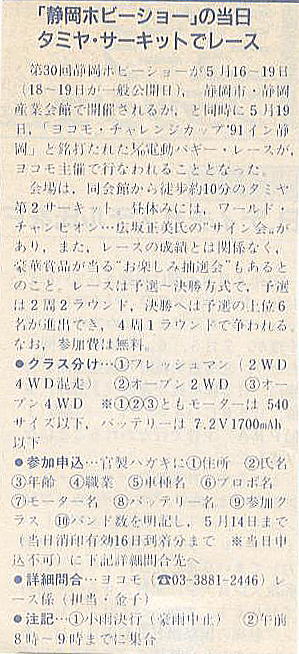 「静岡ホビーショー」の当日
タミヤ・サーキットでレース
第30回静岡ホビーショーが5月16〜19日
(18〜19日が一般公開日)，静岡市・静岡
産業会館で開催されるが，と同時に5月19
日，「ヨコモ・チャレンジカップ'91イン静
岡」と銘打たれた電動バギー・レースが，
ヨコモ主催で行なわれることとなった。
会場は，同会館から徒歩約10分のタミヤ
第2サーキット。昼休みには，ワールド・
チャンピオン…広坂正美氏の“サイン会”が
あり，また，レースの成績とは関係なく，
豪華賞品が当る“お楽しみ抽選会”もあると
のこと。レースは予選〜決勝方式で，予選
は2周2ラウンド，決勝へは予選の上位6
名が進出でき，4周1ラウンドで争われる。
なお，参加費は無料。
●クラス分け…①フレッシュマン(2WD
4WD混走) ②オープン2WD ③オー
プン4WD ※①②③ともモーターは540
サイズ以下，バッテリーは7.2V1700mAh
以下
●参加申込…官製ハガキに①住所 ②氏名
③年齢 ④職業 ⑤車種名 ⑥プロポ名
⑦モーター名 ⑧バッテリー名 ⑨参加ク
ラス ⑩バンド数を明記し，5月14日まで
(当日消印有効16日到着分まで ※当日申
込不可)に下記詳細問合先へ
●詳細問合…ヨコモ(☎03-3881-2446)レ
ース係(担当・金子)
●注記…①小雨決行(豪雨中止) ②午前
8時〜9時までに集合